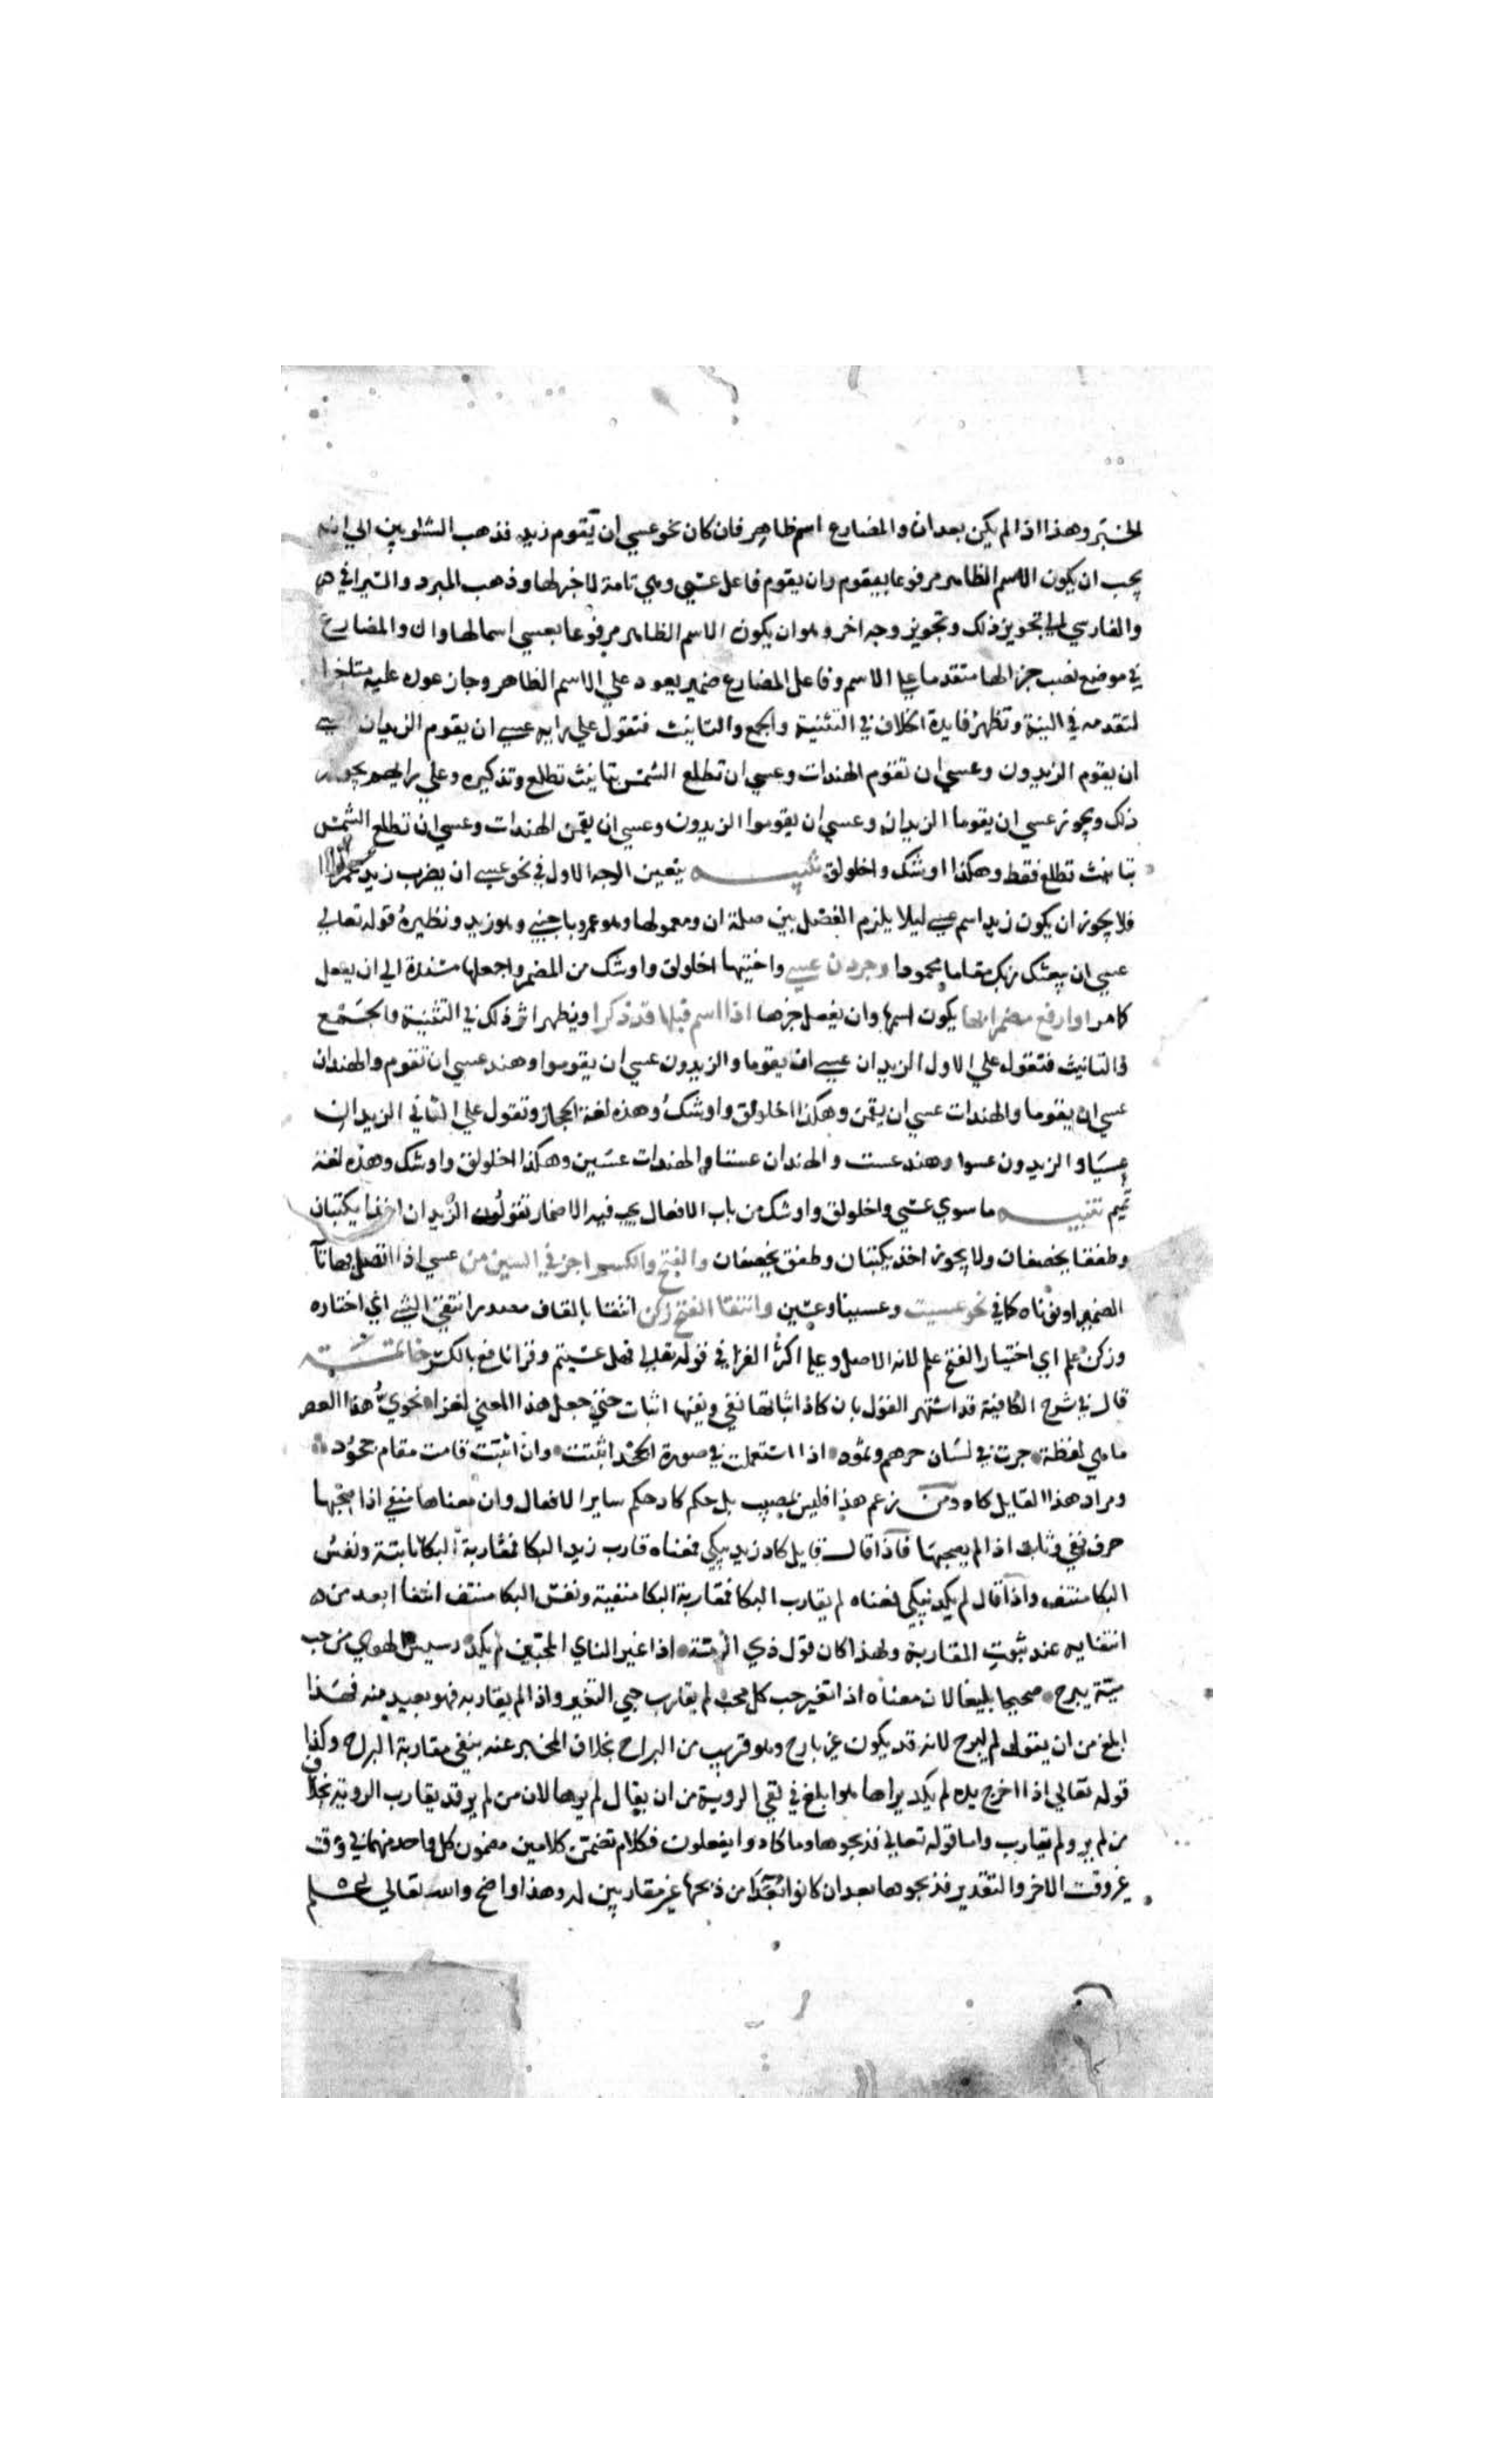 الخبر وهذا اذا لم يكن بعد ان والمضارع اسم ظاهر فان كان نحو عسي ان يقوم زيد فذهب الشلوبين الي انه
يجب ان يكون الاسم الظاهر مرفوعا بيقوم وان يقوم فاعل عسي وهي تامة لا خبر لها وذهب المبرد والسيرافي
والفارسي الي تجويز ذلك وتجويز وجه اخر وهو ان يكون الاسم الظاهر مرفوعا بعسي اسما لها وان والمضارع
في موضع نصب خبرا لها متقدما علي الاسم وفاعل المضارع ضمير يعود علي الاسم الظاهر وجاز عوده عليه متاخرا
لتقدمه في النية وتظهر فايدة الخلاف في التثنية والجمع والتانيث فتقول علي رايه عسي ان يقوم الزيدان عسي
ان يقوم الزيدون وعسي ان تقوم الهندات وعسي ان تطلع الشمس بتانيث تطلع وتذكيره وعلي رايهم يجوز
ذلك ويجوز عسي ان يقوما الزيدان وعسي ان يقوموا الزيدون وعسي ان يقمن الهندات وعسي ان تطلع الشمس
بتانيث تطلع فقط وهكذا اوشك واخلولق تنبيه يتعين الوجه الاول في نحو عسي ان يضرب زيد عمرا
فلا يجوز ان يكون زيد اسم عسي ليلا يلزم الفصل بين صلة ان ومعمولها وهو عمرو باجنبي وهو زيد ونظيره قوله تعالي
عسي ان يبعثك ربك مقاما محمودا وجردن عسي واختيها اخلولق واوشك من المضمر واجعلها مسندة الي ان يفعل
كما مر او ارفع مضمرا بها يكون اسمها وان يفعل خبرها اذا اسم قبلها قد ذكرا ويظهر اثر ذلك في التثنية والجمع
والتانيث فتقول علي الاول الزيدان عسي ان يقوما والزيدون عسي ان يقوموا وهند عسي ان تقوم والهندان
عسي ان يقوما والهندات عسي ان يقمن وهكذا اخلولق واوشك وهذه لغة الحجاز وتقول علي الثاني الزيدان
عسيا والزيدون عسوا وهند عست والهندان عستا والهندات عسين وهكذا اخلولق واوشك وهذه لغة
تميم تنبيه ما سوي عسي واخلولق واوشك من باب الافعال يجب فيه الاضمار تقول الزيدان اخذا يكتبان
وطفقا يخصفان ولا يجوز اخذ يكتبان وطفق يخصفان والفتح والكسر اجز في السين من عسي اذا اتصل بها تآ
الضمير او نوناه كما في نحو عسيت وعسينا وعسين وانتقا الفتح زكن انتقا بالقاف مصدر انتقي الشي اي اختاره
وزكن علم اي اختيار الفتح علم لانه الاصل وعليه اكثر القرا في قوله تعالي فهل عسيتم وقرا نافع بالكسر خاتمة
قال في شرح الكافية قد اشتهر القول بان كاد اثباتها نفي ونفيها اثبات حتي جعل هذا المعني لغزا انحوي هذا العصر
ما هي لفظة جرت في لسان جرهم وثمود اذا استعملت في صورة الجحد اثبتت وان اثبتت قامت مقام جحود
ومراد هذا القايل كاد ومن زعم هذا فليس بمصيب بل حكم كاد حكم ساير الافعال وان معناها منفي اذا صحبها
حرف نفي وثابت اذا لم يصحبها فاذا قال قايل كاد زيد يبكي فمعناه قارب زيد البكا فمقاربة البكا ثابتة ونفس
البكا منتف واذا قال لم يكد يبكي فمعناه لم يقارب البكا فمقاربة البكا منفية ونفس البكا منتف انتفا ابعد من
انتفايه عند ثبوت المقاربة ولهذا كان قول ذي الرمة اذا غير الناي المحبين لم يكد رسيس الهوي من حب
مية يبرح صحيحا بليغا لان معناه اذا تغير حب كل محب لم يقارب حبي التغير واذا لم يقاربه فهو بعيد منه فهذا
ابلغ من ان يقول لم يبرح لانه قد يكون غير بارح وهو قريب من البراح بخلاف المخبر عنه بنفي مقاربة البراح وكذا
قوله تعالي اذا اخرج يده لم يكد يراها هو ابلغ في نفي الروية من ان يقال لم يرها لان من لم ير قد يقارب الروية بخلاف
من لم ير ولم يقارب واما قوله تعالي فذبحوها وما كادوا يفعلون فكلام تضمن كلامين مضمون كل واحد منهما في وقت
غير وقت الاخر والتقدير فذبحوها بعد ان كانوا بعدا من ذبحها غير مقاربين له وهذا واضح والله تعالي اعلم